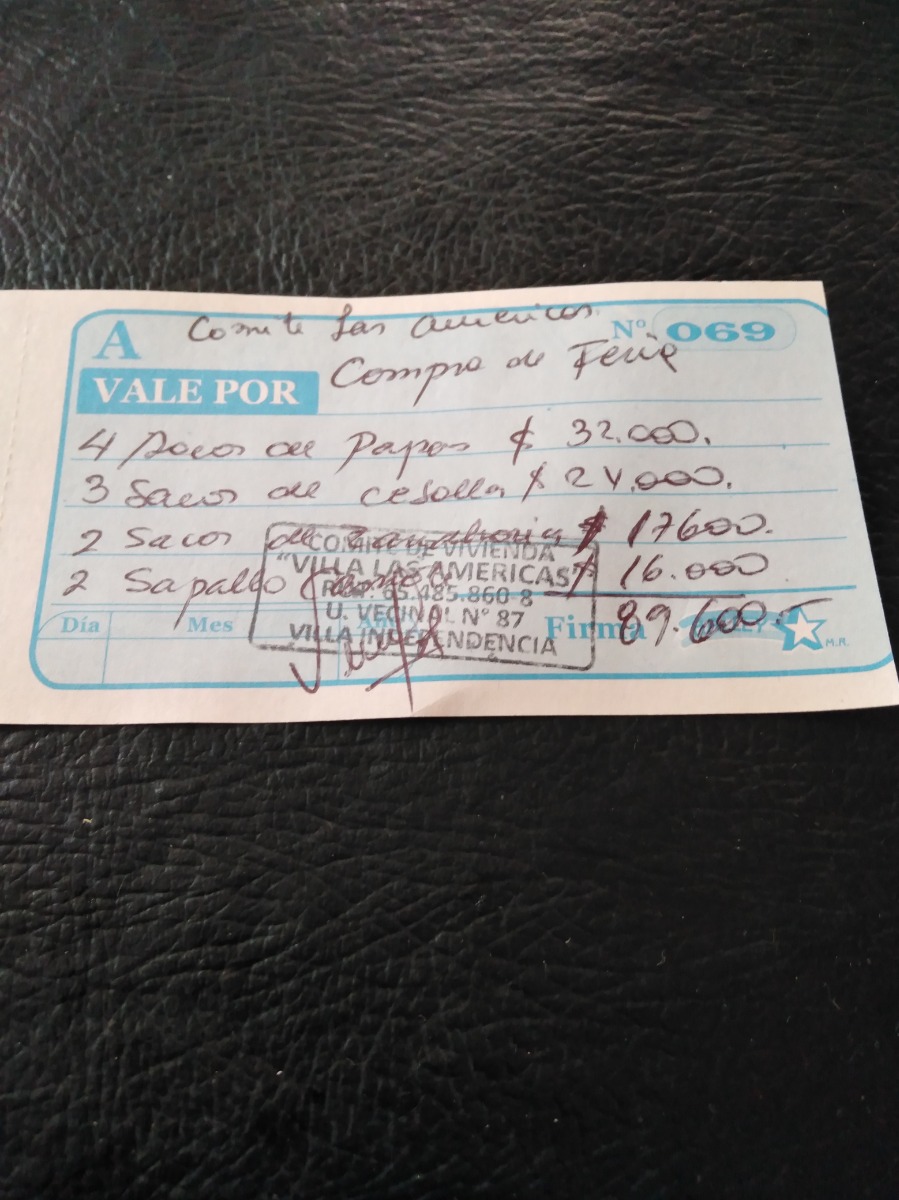 Comite Las Americas.
A
Nº 069
VALE POR Compra de Feria
4 Sacos de Papas $ 32.000.
3 Sacos de cebolla $ 24.000.
2 Sacos de Zanahoria $ 17600.
2 Sapallo $ 16.000
COMITÉ DE VIVIENDA
"VILLA LAS AMERICAS"
65.485.860-8
U. VECINAL Nº 87
VILLA INDEPENDENCIA
Día Mes Firma 89.600.-
M.R.